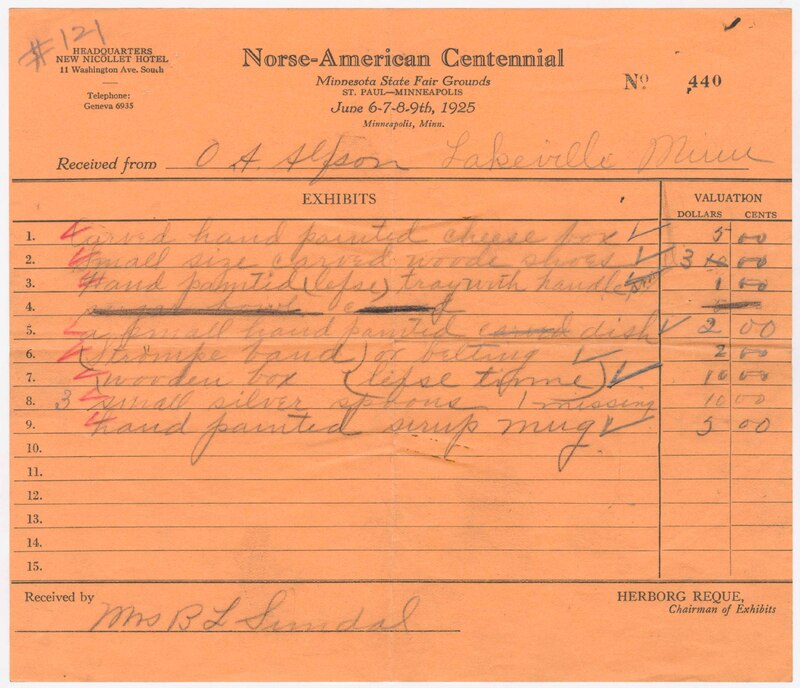 #121
HEADQUARTERS
NEW NICOLLET HOTEL
11 Washington Ave. South
Telephone:
Geneva 6935
Norse-American Centennial
Minnesota State Fair Grounds
ST. PAUL—MINNEAPOLIS
June 6-7-8-9th, 1925
Minneapolis, Minn.
No 440
Received from O A. Alfson Lakeville Minn
EXHIBITS VALUATION
DOLLARS CENTS
1. Carved hand painted cheese box 5 00
2. Small size carved wood shoes 3 00
3. Hand painted (lefse) tray with handle 1 00
4.
5. a small hand painted dish 2 00
6. (Strompe band) or belting 2 00
7. wooden box (lefse tinne) 10 00
8. 3 small silver spoons 1 missing 10 00
9. hand painted sirup mug 5 00
10.
11.
12.
13.
14.
15.
Received by Mrs B L Sundal
HERBORG REQUE,
Chairman of Exhibits